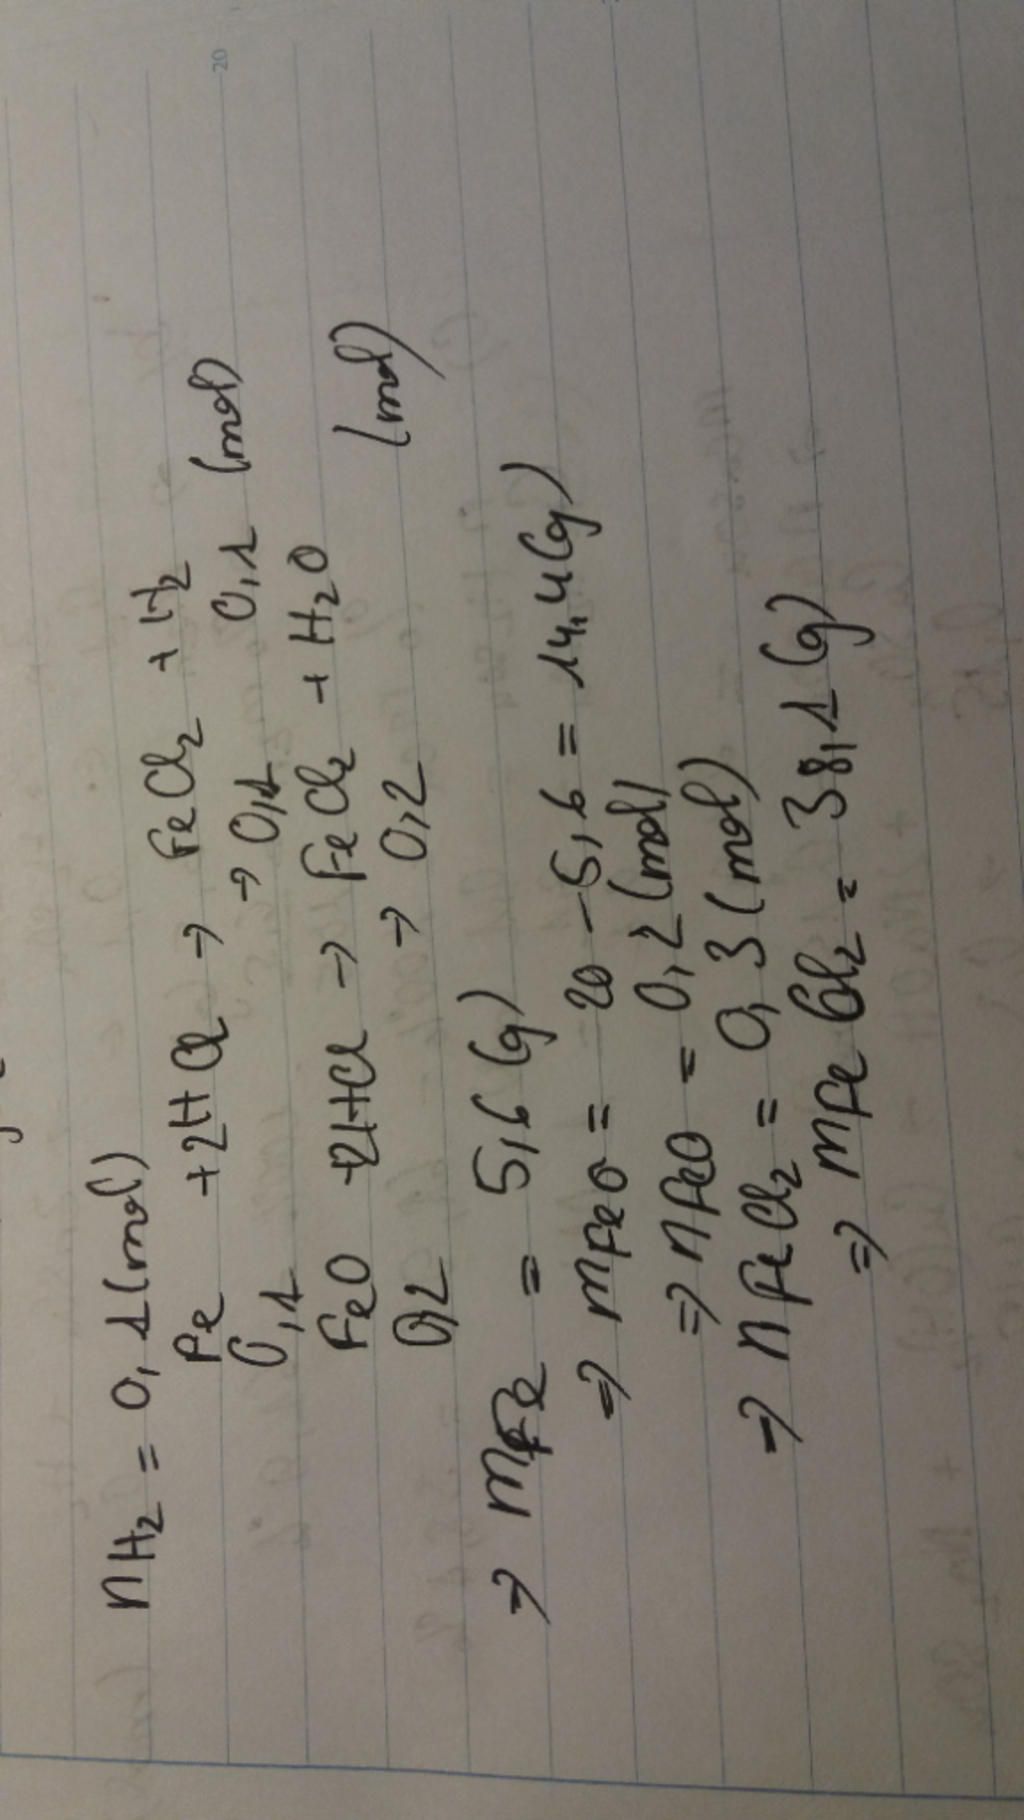 nH2 = 0,1 (mol)
Fe +2HCl → FeCl2 + H2
0,1 → 0,1 0,1 (mol)
FeO +2HCl → FeCl2 + H2O
0,2 → 0,2 (mol)
⇒ mFe = 5,6 (g)
⇒ mFeO = 20 - 5,6 = 14,4 (g)
⇒ nFeO = 0,2 (mol)
⇒ nFeCl2 = 0,3 (mol)
⇒ mFeCl2 = 38,1 (g)
20